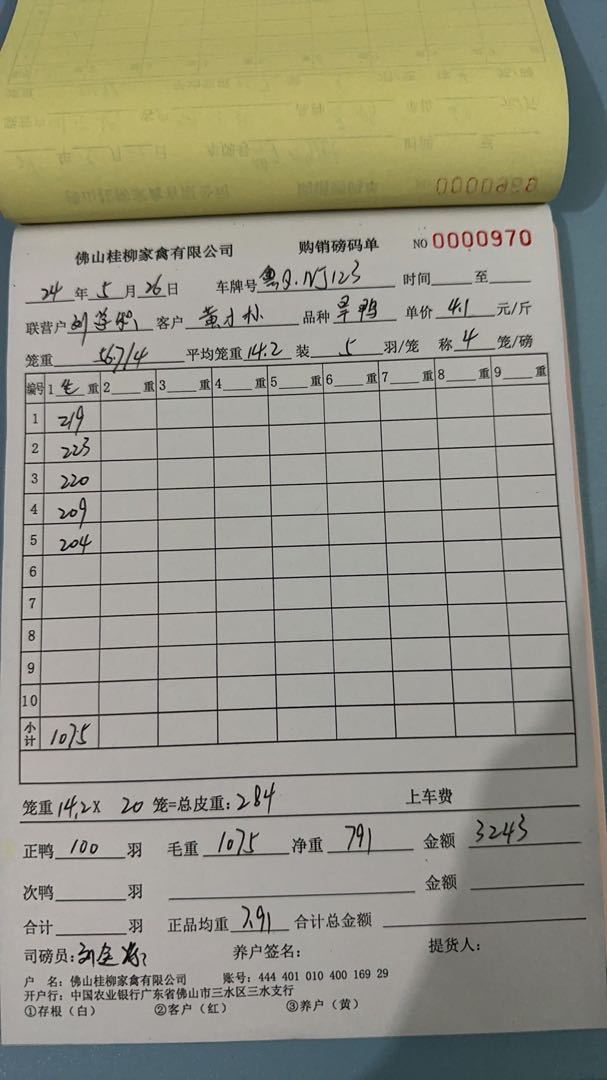 佛山桂柳家禽有限公司 购销磅码单 NO 0000970
24 年 5 月 26 日 车牌号 粤Q·NJ123 时间 至
联营户 客户 黄才林 品种 旱鸭 单价 4.1 元/斤
笼重 56.7/4 平均笼重 14.2 装 5 羽/笼 称 4 笼/磅
编号 1 毛 重 2 重 3 重 4 重 5 重 6 重 7 重 8 重 9 重
1 219
2 223
3 220
4 209
5 204
6
7
8
9
10
小计 1075
笼重 14.2 X 20 笼=总皮重: 284 上车费
正鸭 100 羽 毛重 1075 净重 791 金额 3243
次鸭 羽 金额
合计 羽 正品均重 7.91 合计总金额
司磅员: 养户签名: 提货人:
户 名: 佛山桂柳家禽有限公司 账号: 444 401 010 400 169 29
开户行: 中国农业银行广东省佛山市三水区三水支行
①存根（白） ②客户（红） ③养户（黄）